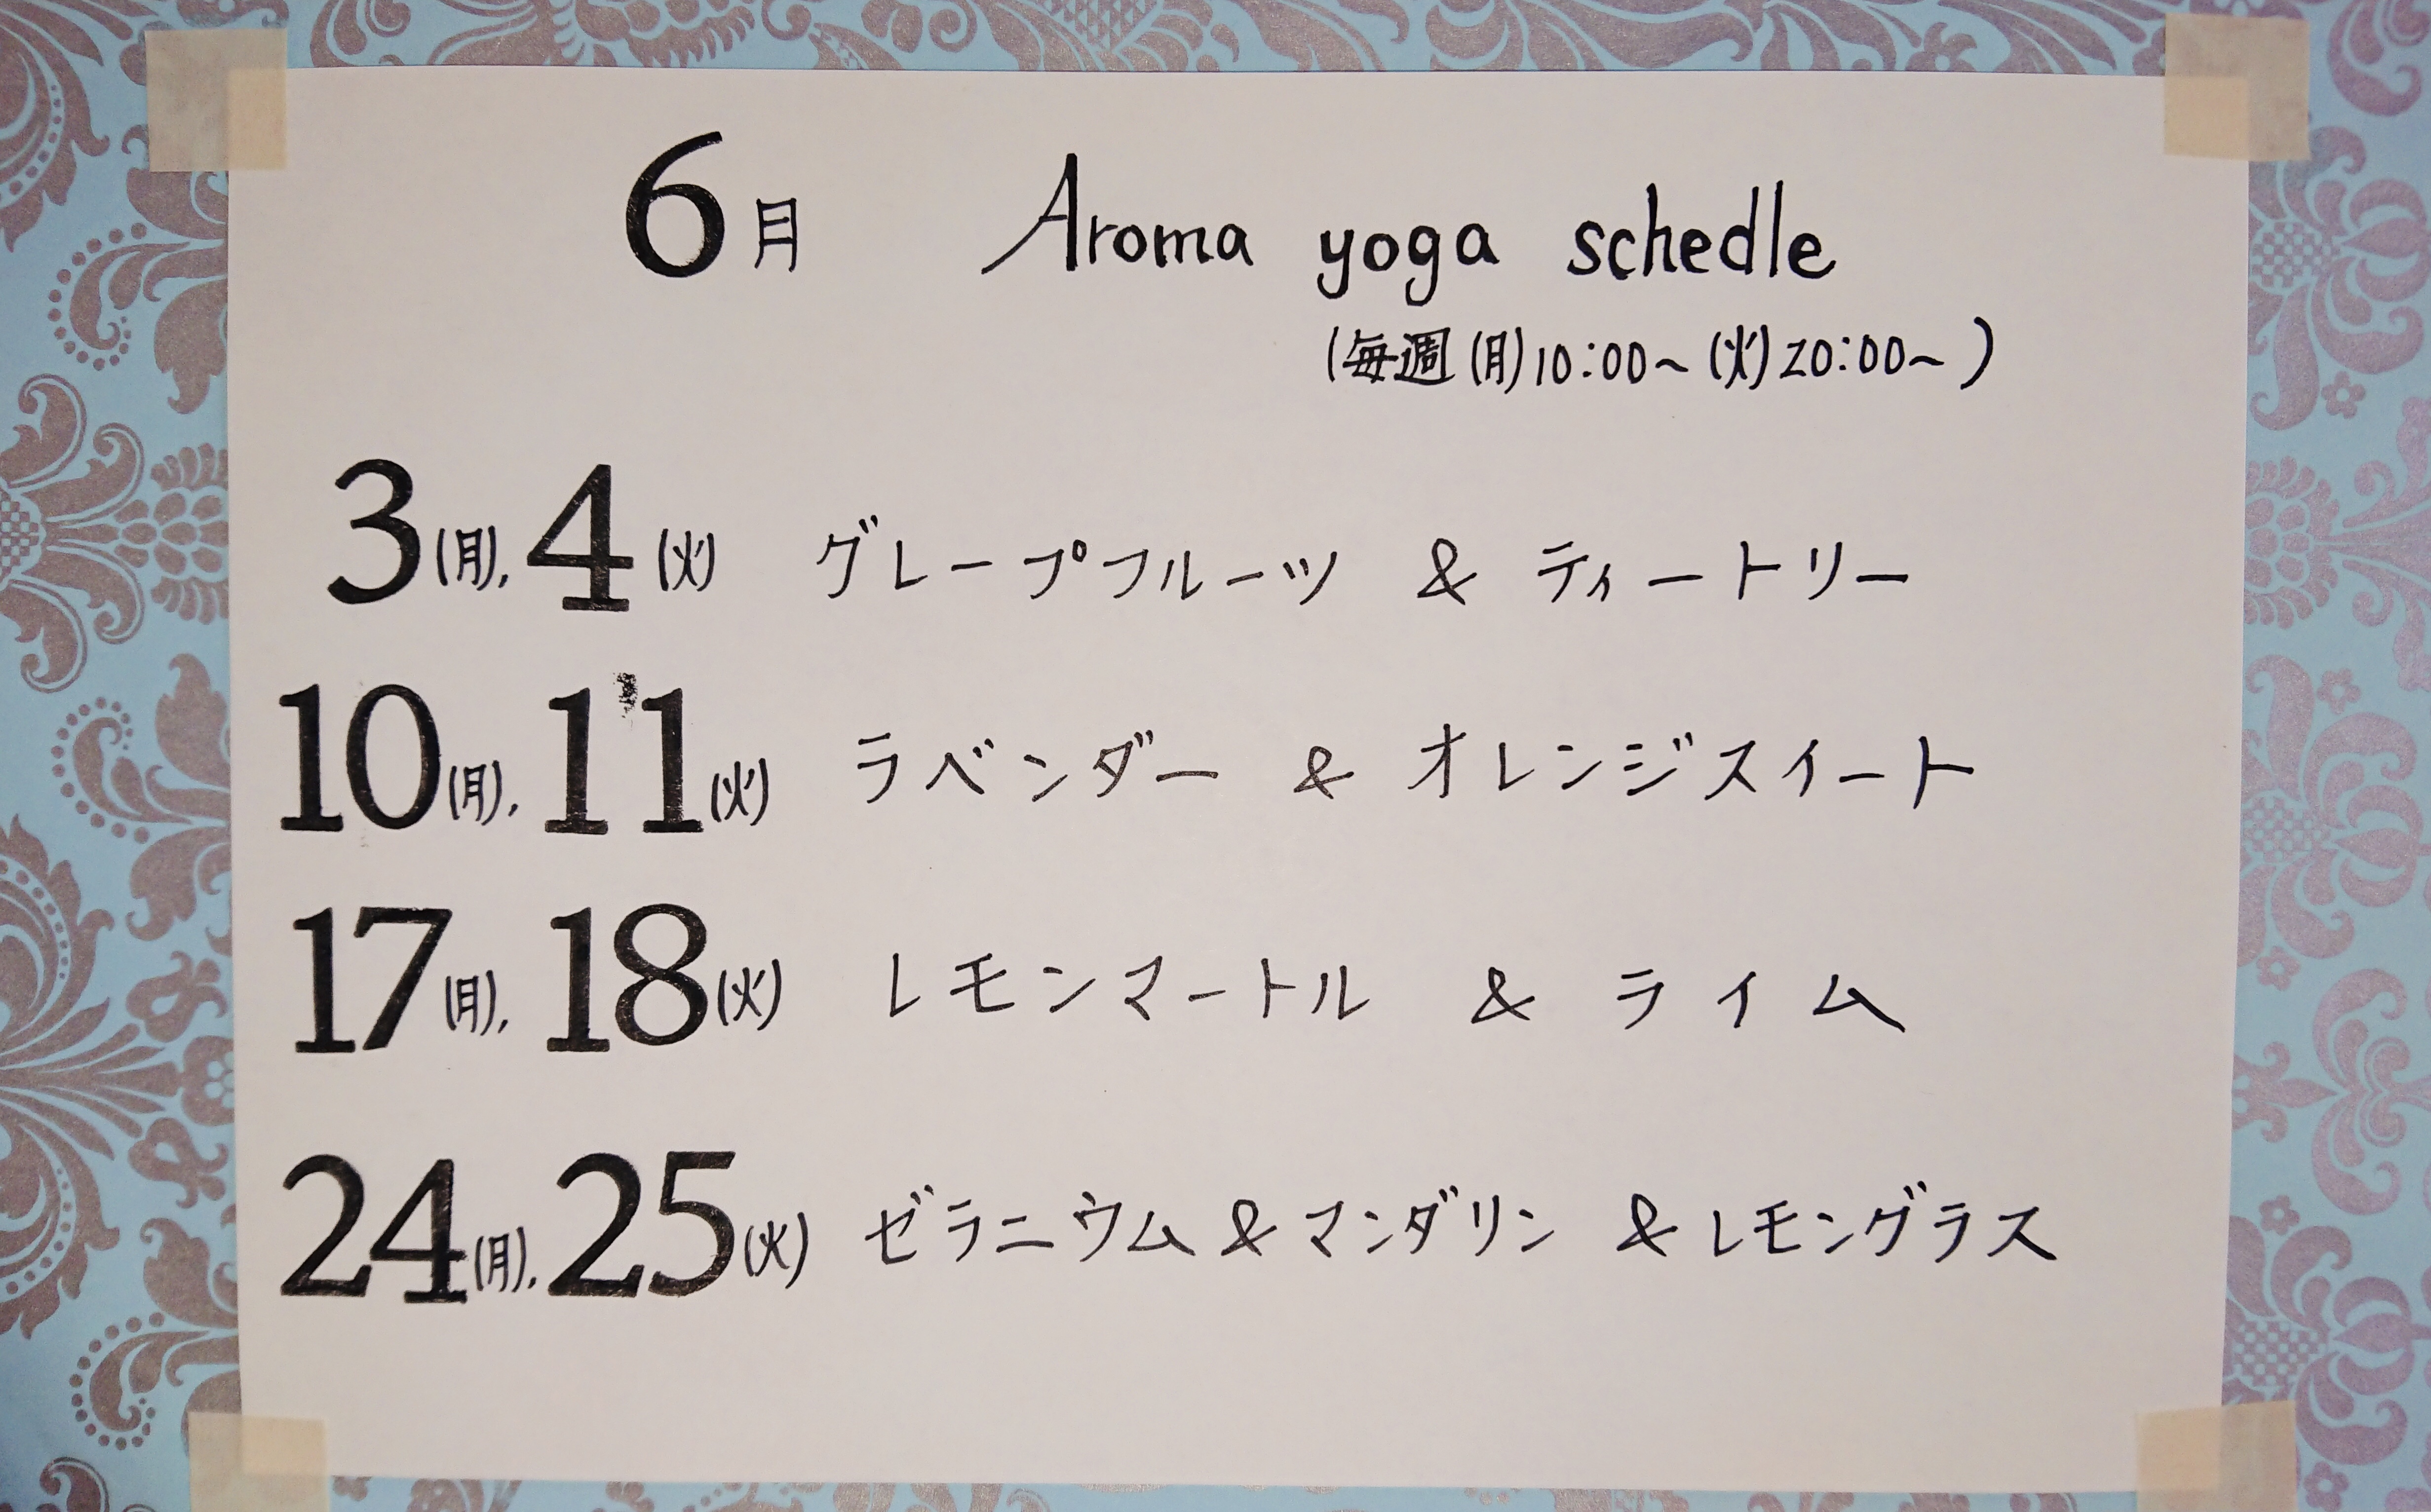 6月 Aroma yoga schedle
(毎週(月)10:00~(火)20:00~)
3(月), 4(火) グレープフルーツ & ティートリー
10(月), 11(火) ラベンダー & オレンジスイート
17(月), 18(火) レモンマートル & ライム
24(月), 25(火) ゼラニウム & マンダリン & レモングラス